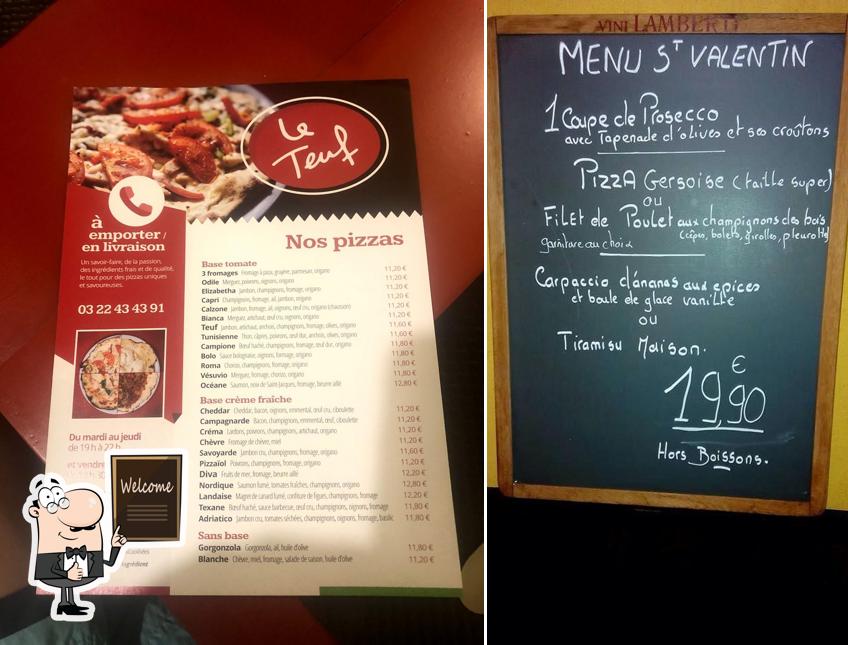 Le
Teuf
à
emporter /
en livraison
Un savoir-faire, de la passion,
des ingrédients frais et de qualité,
le tout pour des pizzas uniques
et savoureuses.
03 22 43 43 91
Du mardi au jeudi
de 19 h à 22 h
et vendre
Nos pizzas
Base tomate
3 fromages Fromage à pizza, gruyère, parmesan, origano 11,20 €
Odile Merguez, poivrons, oignons, origano 11,20 €
Elizabetha Jambon, champignons, fromage, origano 11,20 €
Capri Champignons, fromage, ail, jambon, origano 11,20 €
Calzone Jambon, fromage, ail, oignons, œuf cru, origano (chausson) 11,20 €
Bianca Merguez, artichaut, œuf cru, oignons, origano 11,20 €
Teuf Jambon, artichaut, anchois, champignons, fromage, olives, origano 11,60 €
Tunisienne Thon, câpres, poivrons, œuf dur, anchois, olives, origano 11,60 €
Campione Bœuf haché, champignons, fromage, œuf dur, origano 11,80 €
Bolo Sauce bolognaise, oignons, fromage, origano 11,80 €
Roma Chorizo, champignons, fromage, origano 11,80 €
Vésuvio Merguez, fromage, chorizo, origano 11,80 €
Océane Saumon, noix de Saint-Jacques, fromage, beurre aillé 12,80 €
Base crème fraîche
Cheddar Cheddar, bacon, oignons, emmental, œuf cru, ciboulette 11,20 €
Campagnarde Bacon, champignons, emmental, œuf, ciboulette 11,20 €
Créma Lardons, poivrons, champignons, artichaut, origano 11,20 €
Chèvre Fromage de chèvre, miel 11,20 €
Savoyarde Jambon cru, champignons, fromage, origano 11,60 €
Pizzaïol Poivrons, champignons, fromage, origano 11,20 €
Diva Fruits de mer, fromage, beurre aillé 12,20 €
Nordique Saumon fumé, tomates fraîches, champignons, origano 12,80 €
Landaise Magret de canard fumé, confiture de figues, champignons, fromage 12,20 €
Texane Bœuf haché, sauce barbecue, œuf cru, champignons, oignons, fromage 11,80 €
Adriatico Jambon cru, tomates séchées, champignons, oignons, fromage, basilic 11,80 €
Sans base
Gorgonzola Gorgonzola, ail, huile d'olive 11,80 €
Blanche Chèvre, miel, fromage, salade de saison, huile d'olive 11,20 €
Welcome
VINI LAMBERTI
MENU St VALENTIN
1 Coupe de Prosecco
avec Tapenade d'olives et ses croûtons
PizzA Gersoise (taille super)
ou
Filet de Poulet aux champignons des bois
(cèpes, bolets, girolles, pleurotte)
garniture au choix
Carpaccio d'ananas aux epices
et boule de glace vanille
ou
Tiramisu Maison.
€
19,90
Hors Boissons.